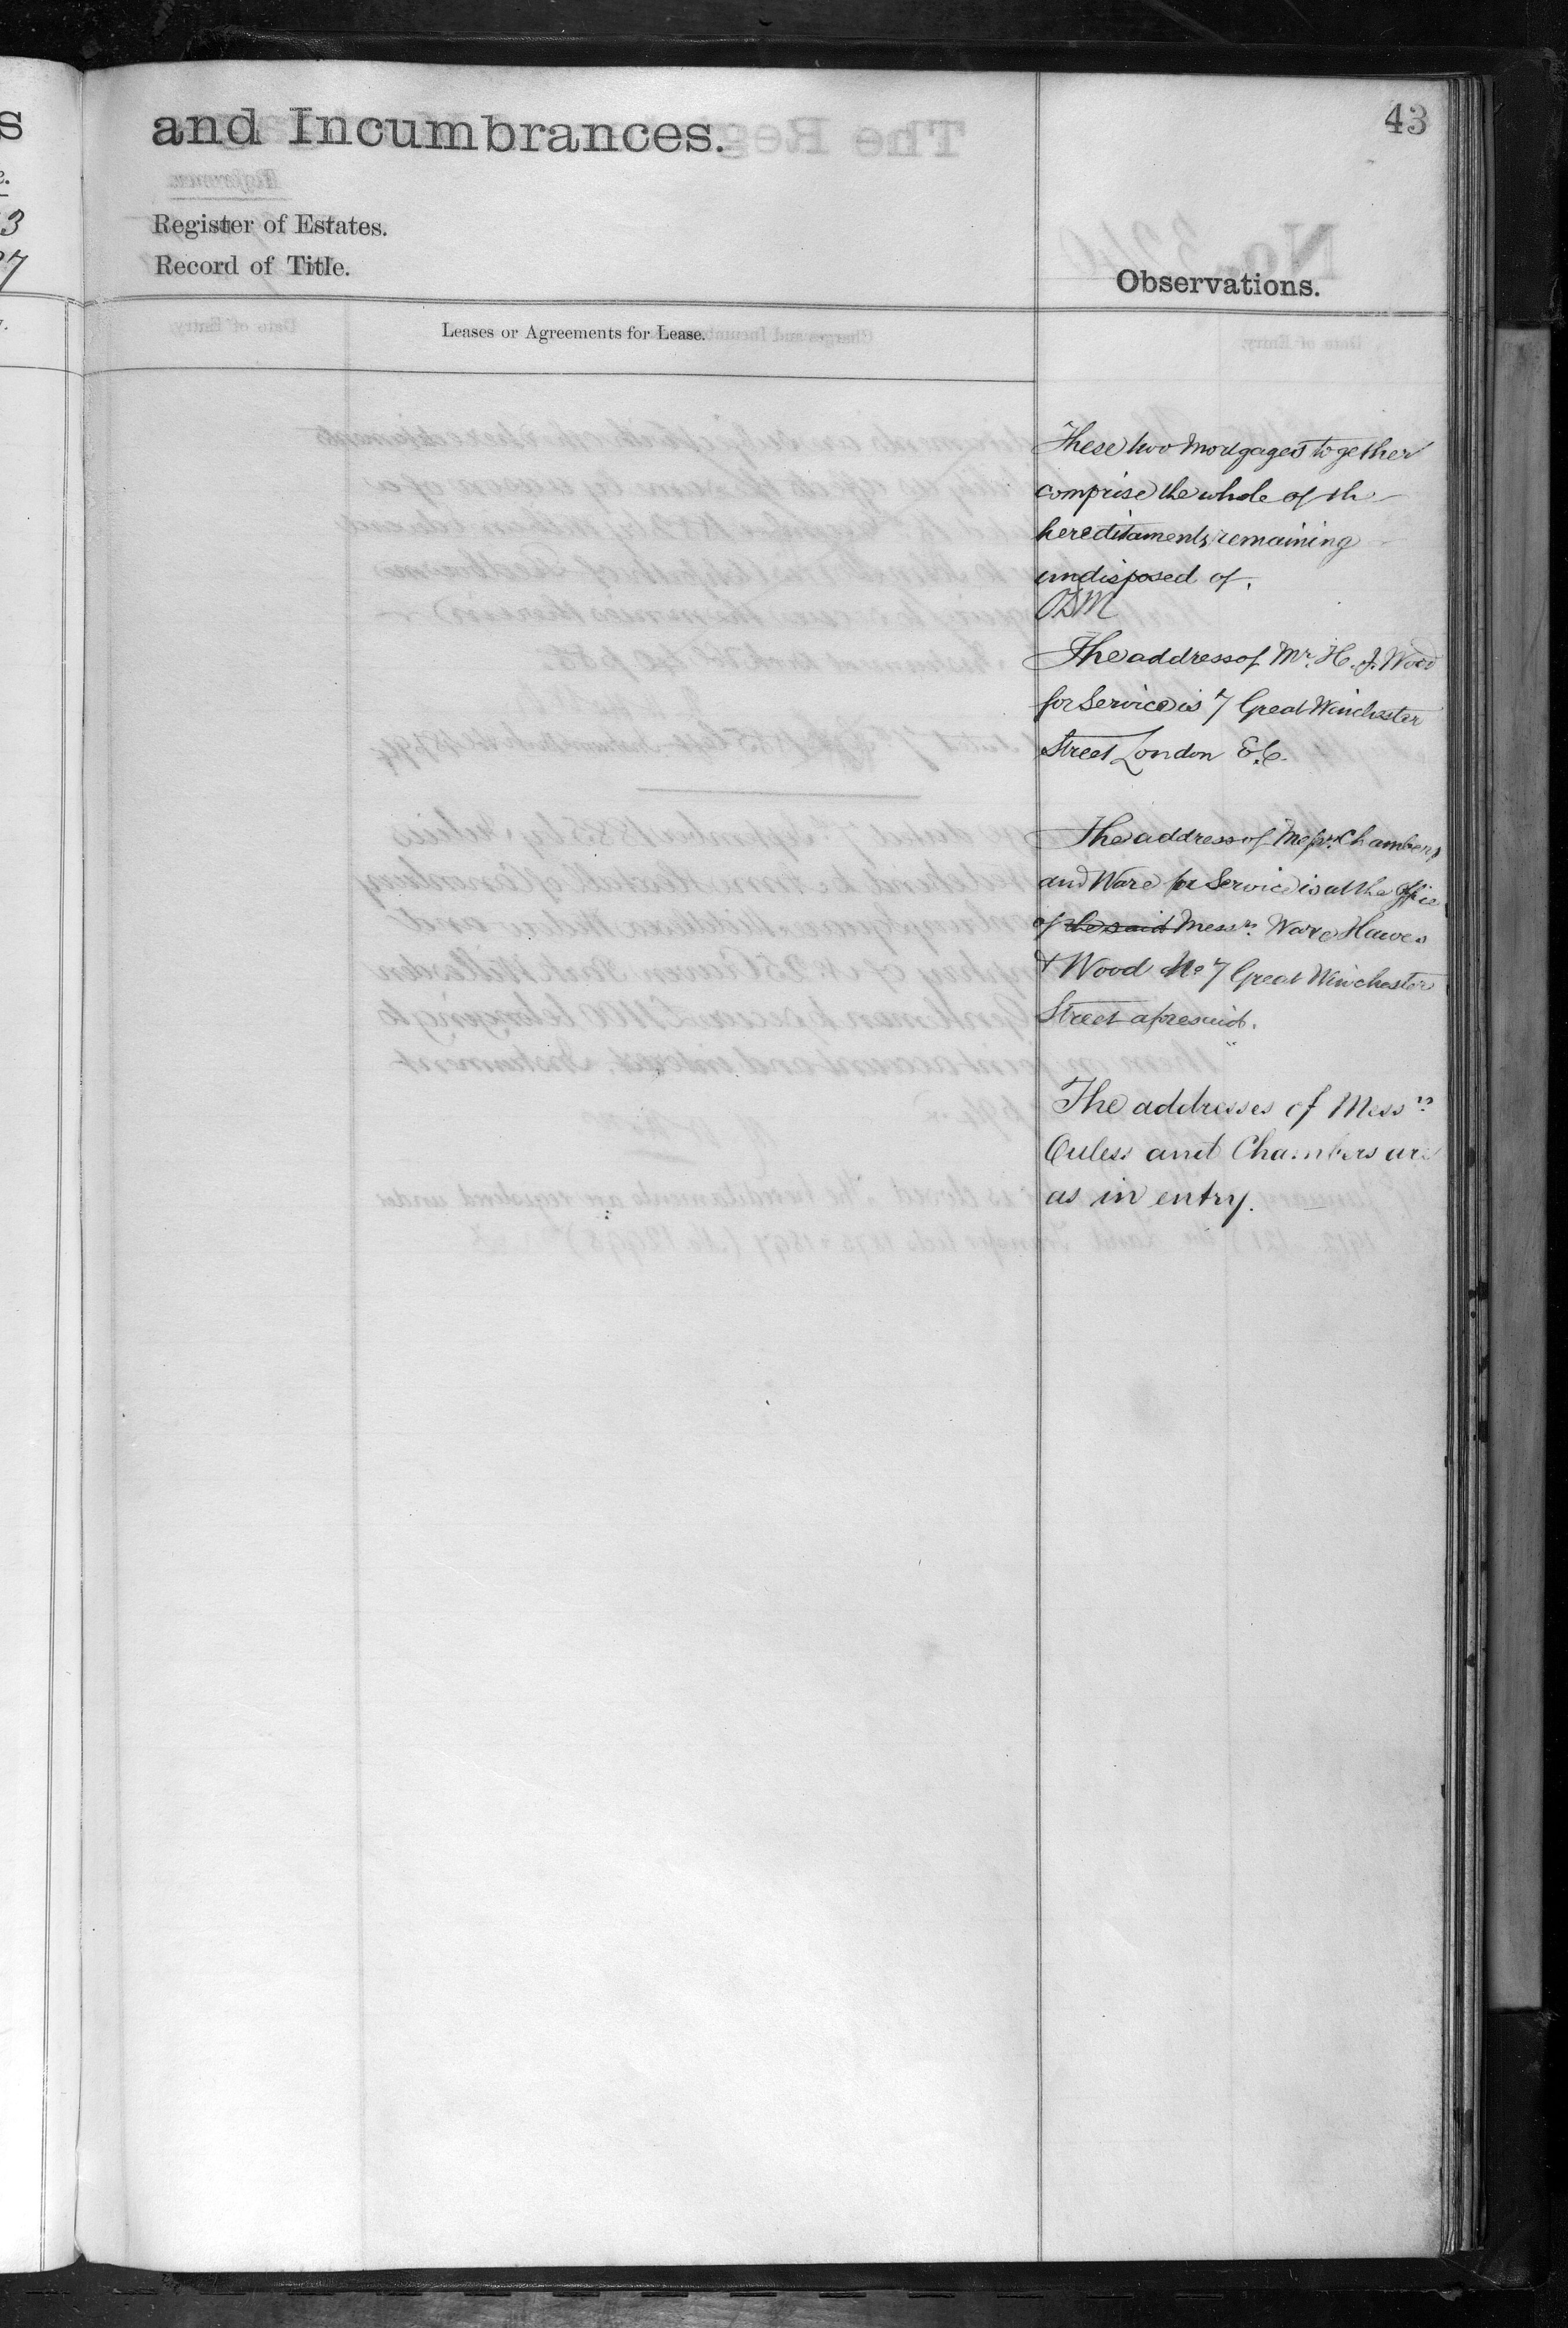 and Incumbrances.
43
Register of Estates.
Record of Title.
Observations.
Leases or Agreements for Lease.
These two Mortgages together
comprise the whole of the
hereditaments remaining
undisposed of.
The address of Mr. H. J. Wood
for Service is 7 Great Winchester
Street London E.C.
The address of Messrs. Chambers
and Ware for Service is at the office
of the said Messrs. Ware Hawes
& Wood No 7 Great Winchester
Street aforesaid.
The addresses of Messrs.
Ouless and Chambers are
as in entry.